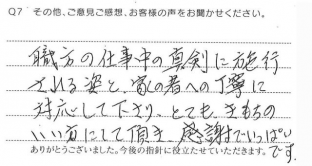 Q7 その他、ご意見ご感想、お客様の声をお聞かせください。
職方の仕事中の真剣に施行
される姿と、家の者への丁寧に
対応して下さり、とても、きもちの
いい方にして頂き、感謝でいっぱい
です。
ありがとうございました。今後の指針に役立たせていただきます。